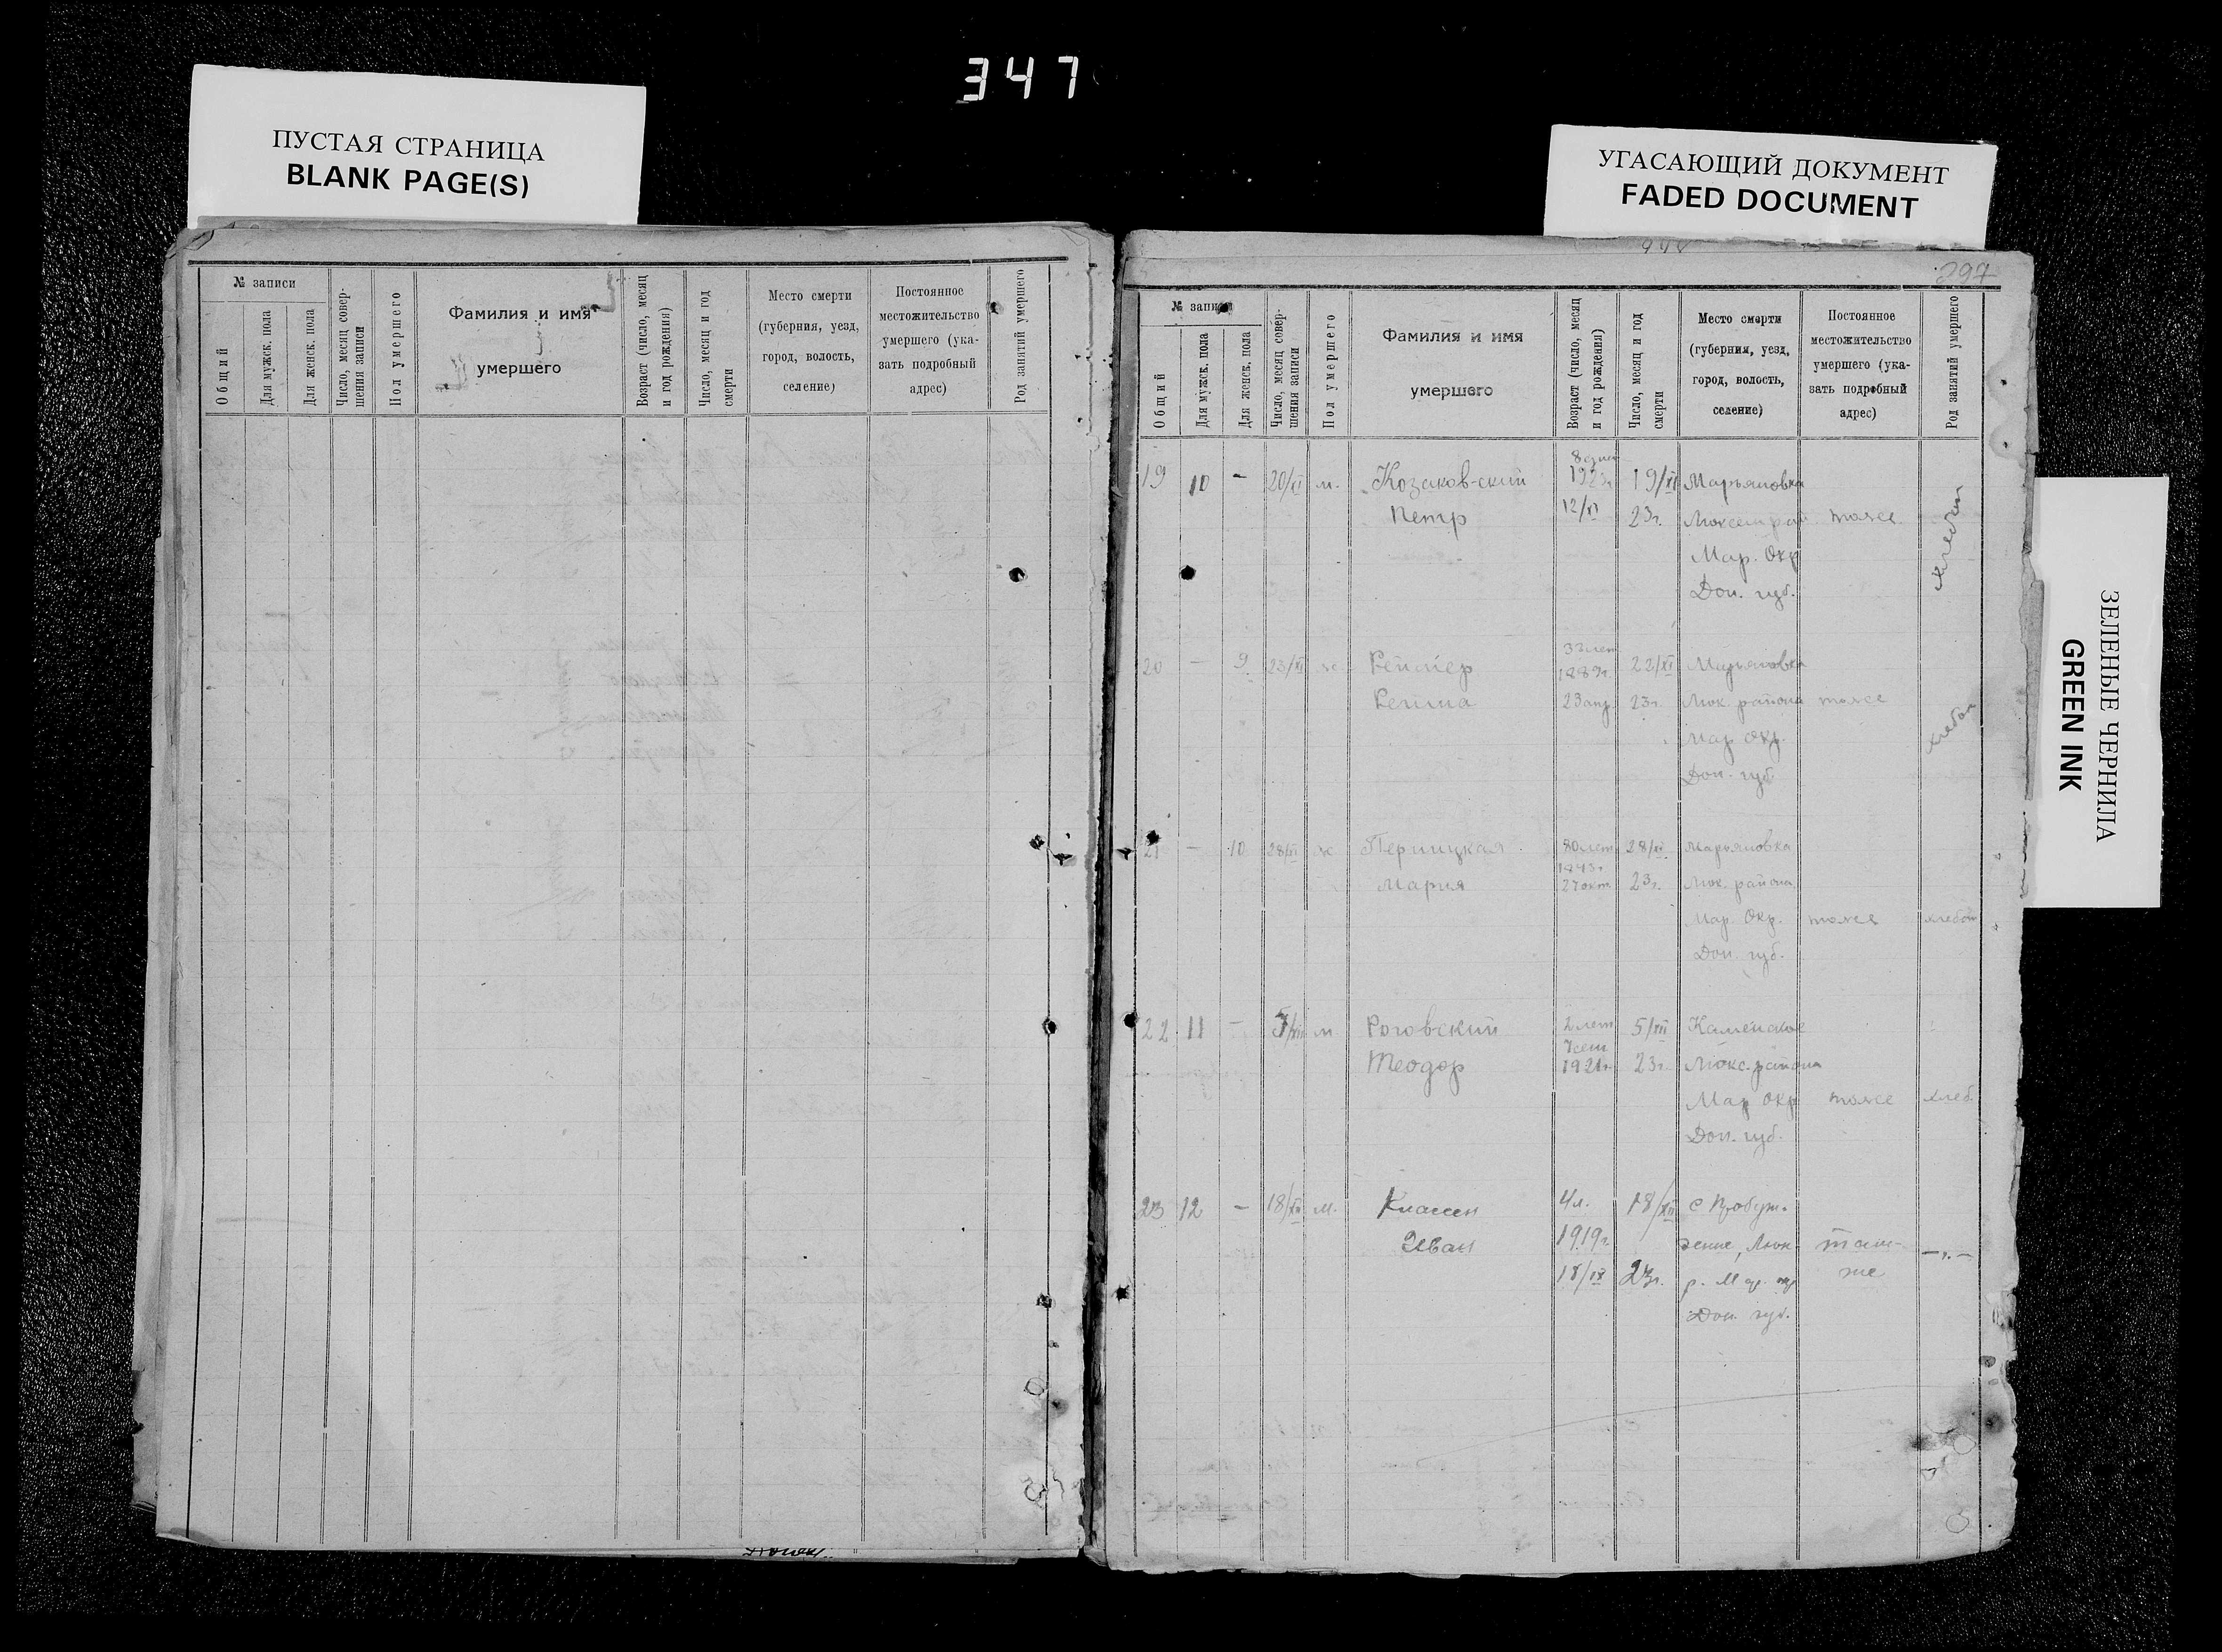 347
ПУСТАЯ СТРАНИЦА
BLANK PAGE(S)
УГАСАЮЩИЙ ДОКУМЕНТ
FADED DOCUMENT
ЗЕЛЕНЫЕ ЧЕРНИЛА
GREEN INK
№ записи
Общий
Для мужск. пола
Для женск. пола
Число, месяц совер-
шения записи
Пол умершего
Фамилия и имя
умершего
Возраст (число, месяц
и год рождения)
Число, месяц и год
смерти
Место смерти
(губерния, уезд,
город, волость,
селение)
Постоянное
местожительство
умершего (ука-
зать подробный
адрес)
Род занятий умершего
297
№ записи
Общий
Для мужск. пола
Для женск. пола
Число, месяц совер-
шения записи
Пол умершего
Фамилия и имя
умершего
Возраст (число, месяц
и год рождения)
Число, месяц и год
смерти
Место смерти
(губерния, уезд,
город, волость,
селение)
Постоянное
местожительство
умершего (ука-
зать подробный
адрес)
Род занятий умершего
19 10 - 20/XI м. Козаков-ский 1923г 19/XI Марьяновка
Петр 12/XI 23г. тоже
Мар. Окр
Дон. губ.
20 — 9 23/XI ж 1889г. 22/XI Марьяновка
23 апр. 23г. Люк. района тоже
Мар Окр.
Дон. губ
21 — 10 28/XI ж 80 лет 28/XI Марьяновка
Мария 1843г 27 окт 23г. Люк. района
Мар. Окр. тоже хлебоп
Дон. губ.
22 11 — 5/XII м Роговский 2 лет 5/XII Каменское
Теодор 1921г 23г. Люкс. района
Мар Окр тоже хлеб.
Дон. губ.
23 12 — 18/XII м. Классен 4 л. 18/XII с Пробуж-
Иван 1919г. дение, Люк- там-
18/IX 23г. р. Мар. окр же —„—
Дон. губ.